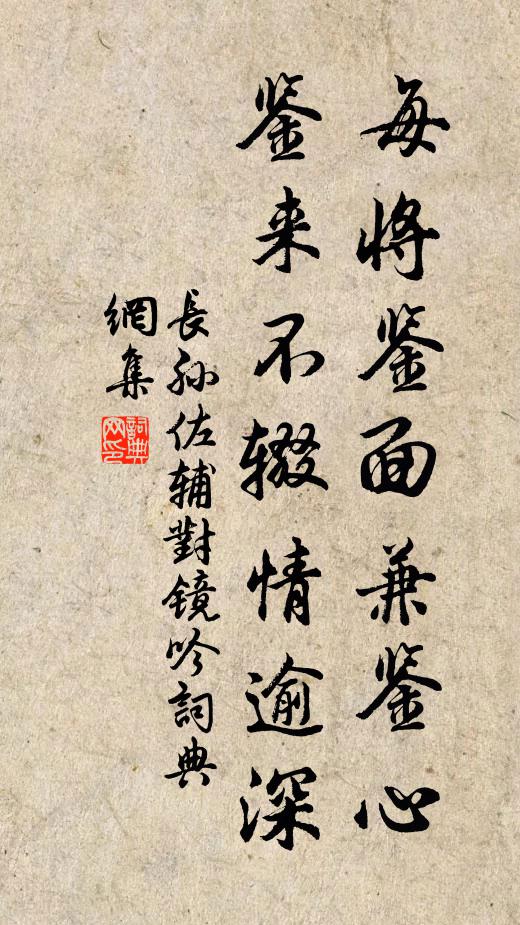 每将鉴面兼鉴心
鉴来不辍情逾深
長孙佐辅對镜吟詞典
網集
詞典
网印